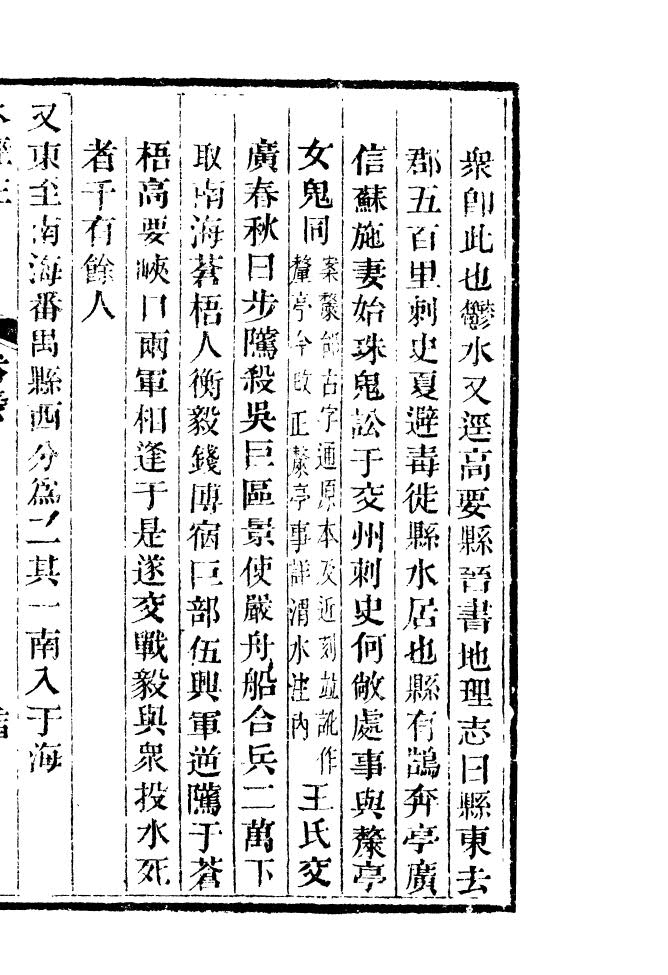 衆卽此也鬱水又逕高要縣晉書地理志曰縣東去
郡五百里刺史夏避毒徙縣水居也縣有鵠奔亭廣
信蘇施妻始珠鬼訟于交州刺史何敞處事與斄亭
女鬼同案斄邰古字通原本及近刻竝訛作
鼇亭今改正斄亭事詳渭水注內王氏交
廣春秋曰步騭殺吳巨區景使嚴舟船合兵二萬下
取南海蒼梧人衡毅錢博宿巨部伍興軍逆騭于蒼
梧高要峽口兩軍相逢于是遂交戰毅與衆投水死
者千有餘人
又東至南海番禺縣西分爲二其一南入于海